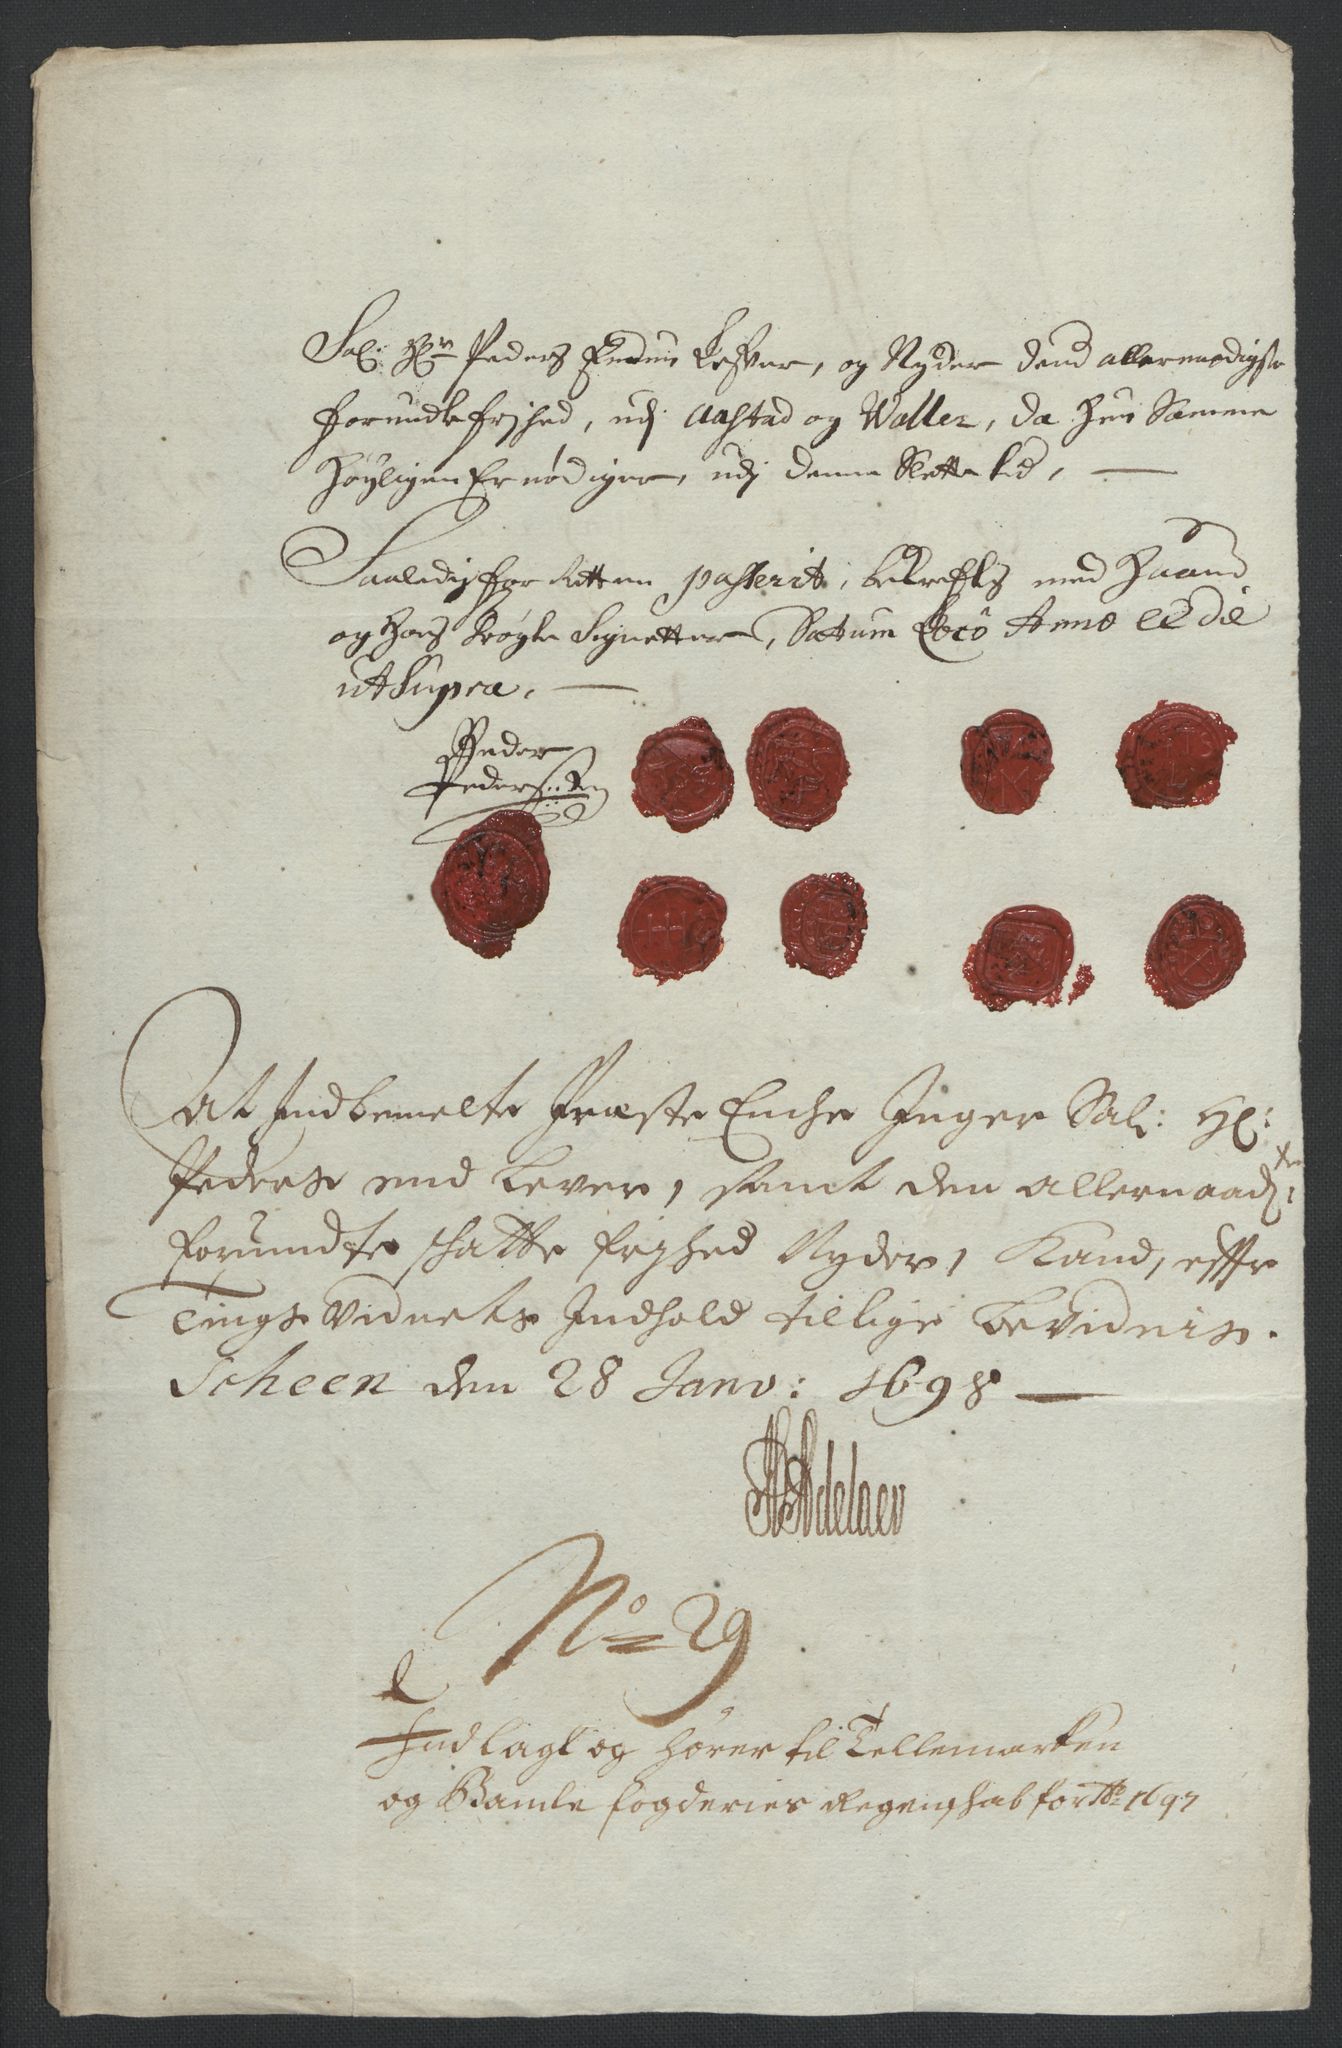 Sal: Hr Peders Endnu Lefver, og Nyder dend allernaadigste
forundte frjhed, udj Aastad og Waller, da hun Samme
Høyligen Ernødiger, udj denne Slette tid,
Saaledis for Retten passerit, bekreftis med Haand
og hos trøgte Signetter, Datum Loco Anno et die
ut Supra.
Peder
Pedersen
At Indbemelte Præste Enche Inger Sal: Hr:
Peders end Lever, samt den allernaadten:
forundte schatte frjhed Nyder, Kand, efftr
Tings Vidnets Indhold tillige bevidnis.
Scheen den 28 Janv: 1698
Adelaer
No 29
Indlagt og hører til Tellemarken
og Bamle fogderies Regenschab for Ao 1697